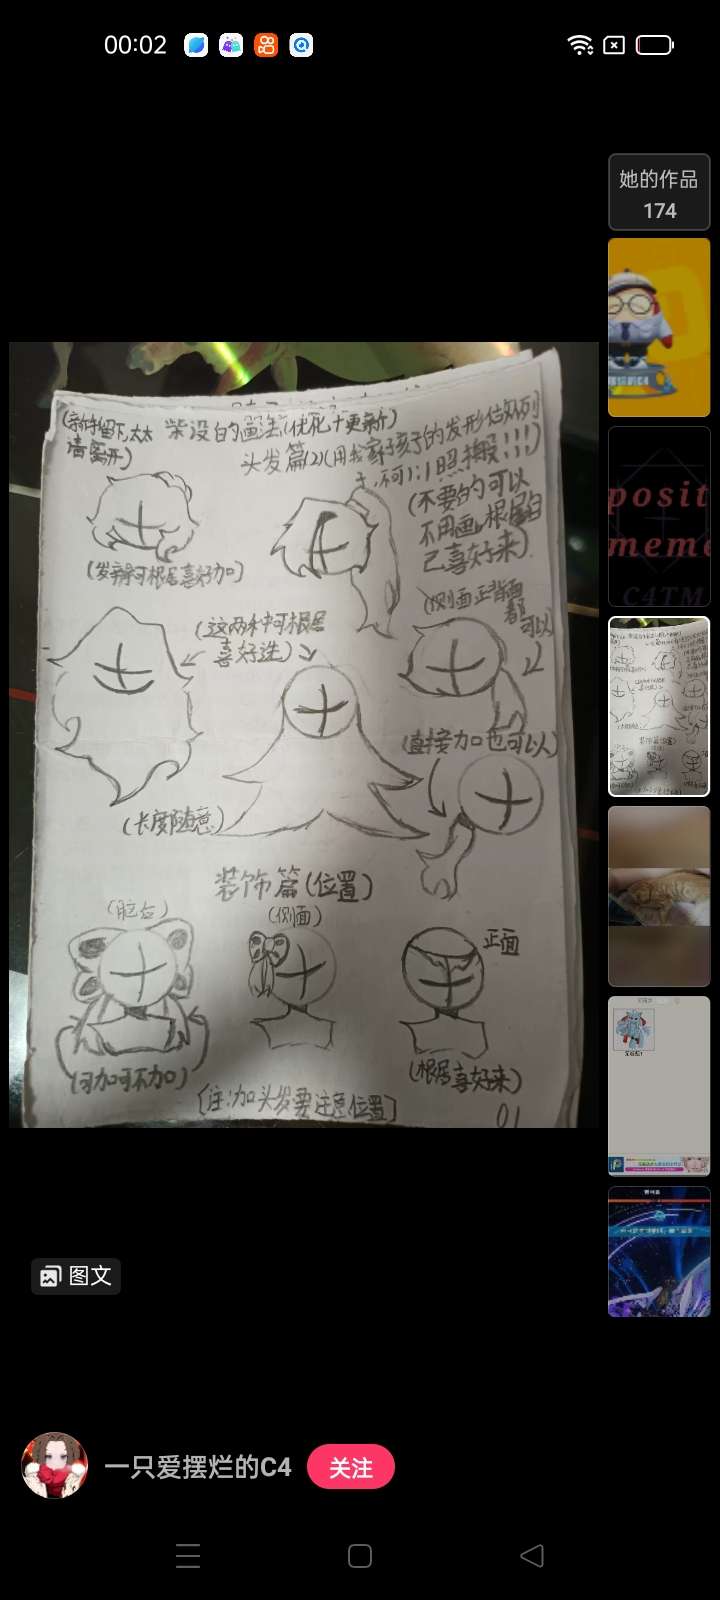 00:02
她的作品
174
posit
meme
C4TM
(新手留下,太太
请离开)
柴没白的画法(优化+更新)
头发篇(2)(用我家子孩子的发形做例
子,不可1:1照搬!!!)
(不要的可以
不用画,根居自
己喜好来)
(发辫可根居喜好加)
(侧面正背面
都可以)
(这两种可根居
喜好选)
(直接加也可以)
(长度随意)
装饰篇(位置)
(脑后)
(侧面)
正面
(可加可不加)
(根居喜好来)
[注:加头发要注意位置]
01
图文
一只爱摆烂的C4
关注